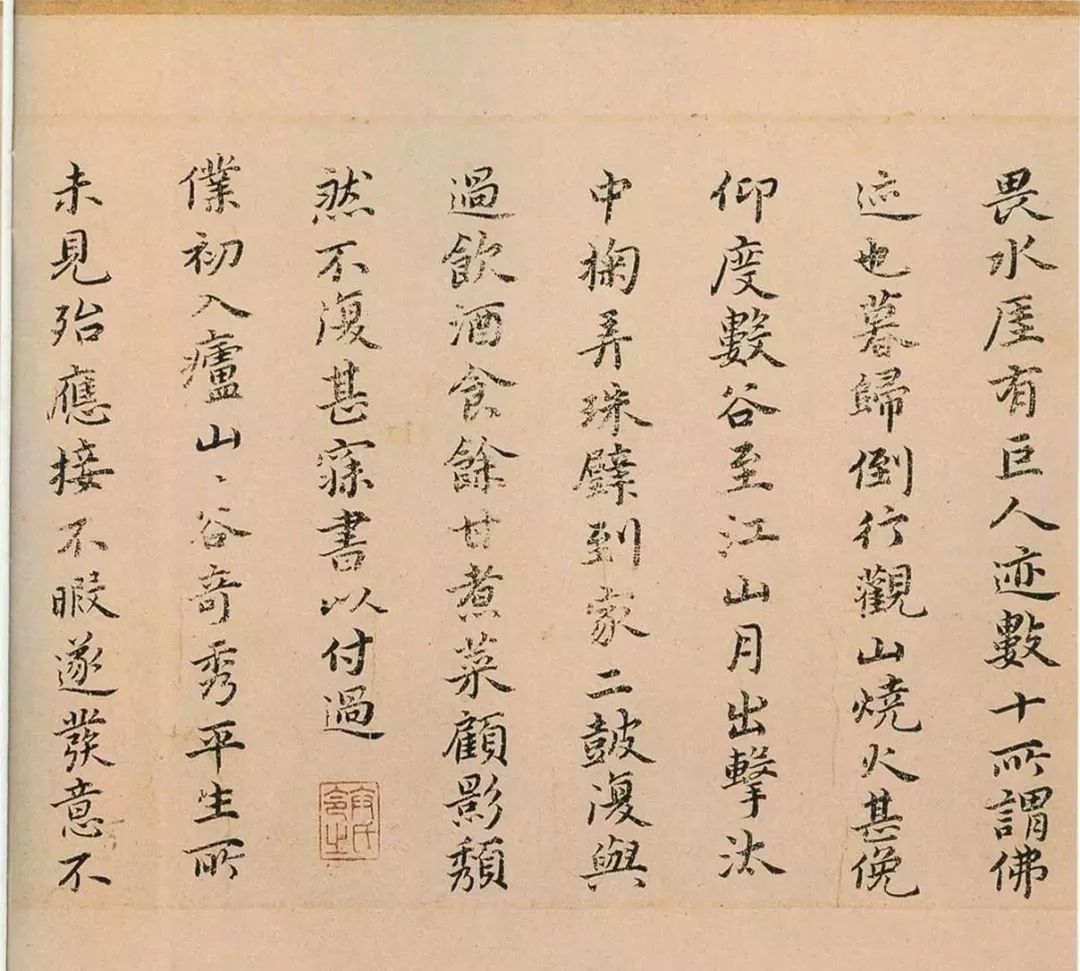 畏水厓有巨人迹數十所謂佛
迹也暮歸倒行觀山燒火甚俛
仰度數谷至江山月出擊汰
中掬弄珠璧到家二鼓復與
過飲酒食餘甘煮菜顧影頹
然不復甚寐書以付過
僕初入廬山〻谷奇秀平生所
未見殆應接不暇遂發意不